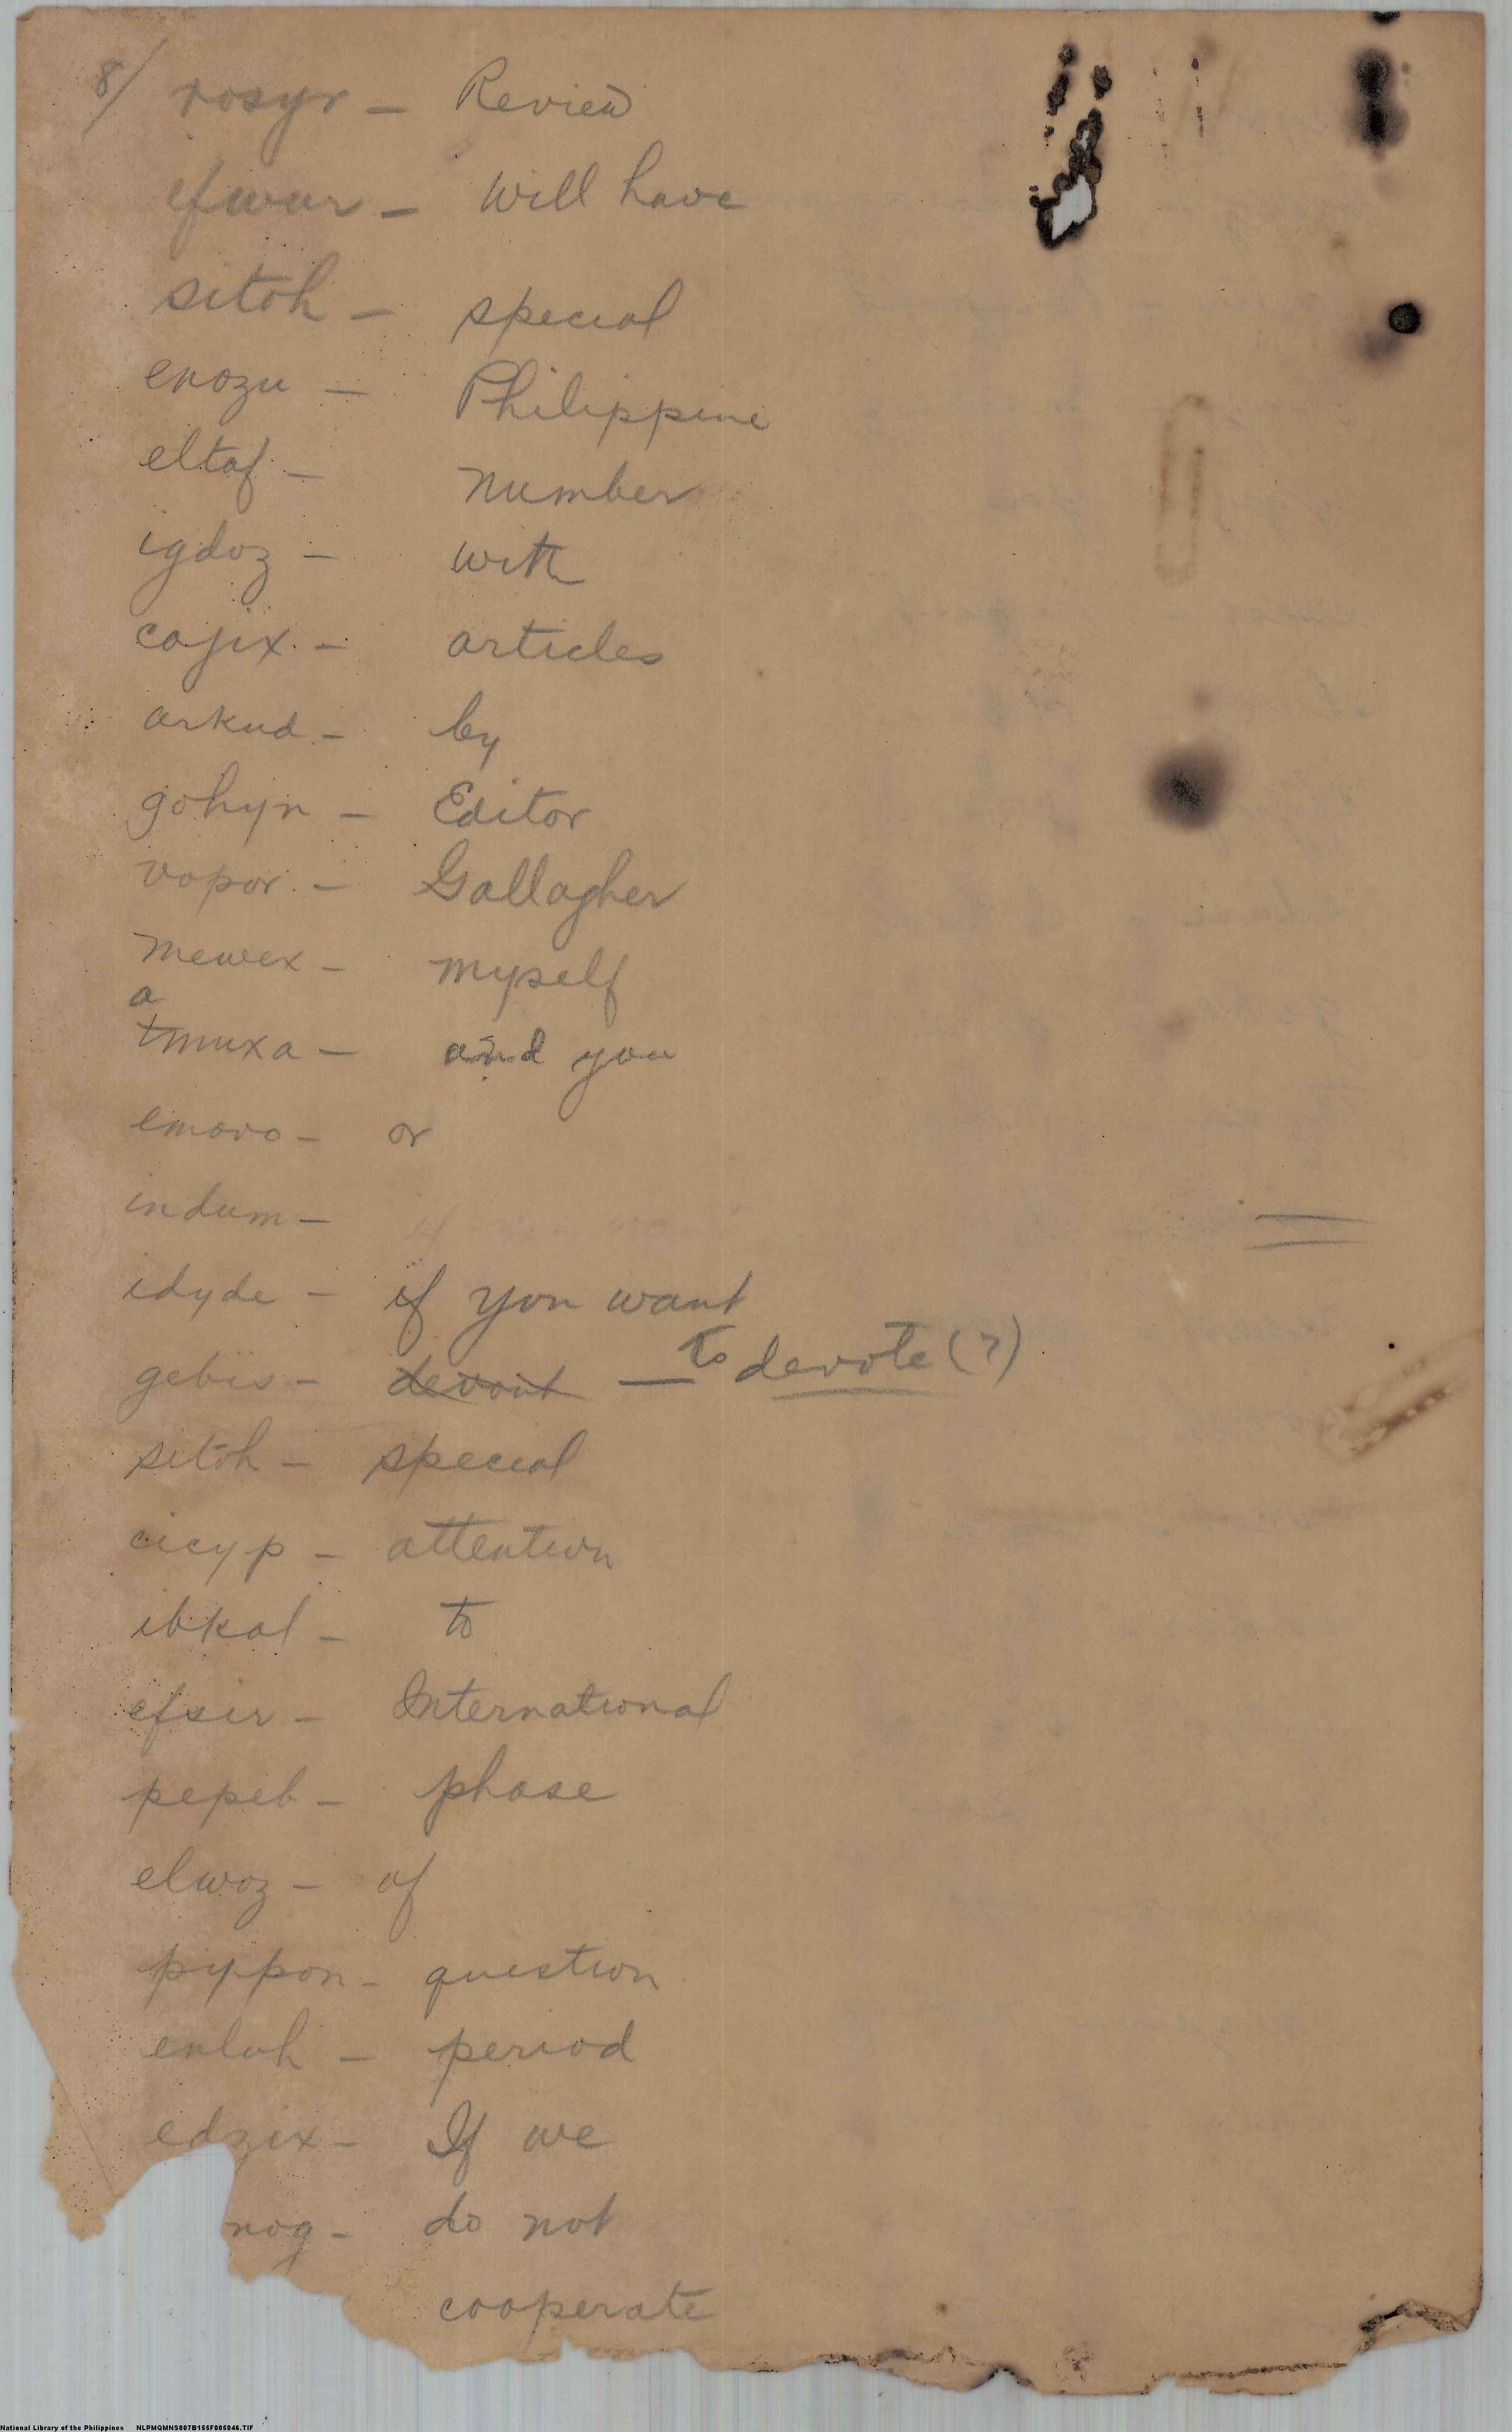 8/ rosyr - Review
efwur - will have
sitoh - special
enozu - Philippine
eltaf - number
igdoz - with
cajix - articles
arkud - by
gohyn - Editor
vopor - Gallagher
mewex - myself
a
tmuxa - and you
emovo - or
indum -
idyde - if you want
gebis - devout — to devote (?)
sitoh - special
cicyp - attention
ibkal - to
efsir - International
pepeb - phase
elwoz - of
pypon - question
enluh - period
edzix - If we
nog - do not
cooperate
National Library of the Philippines NLPMQMNS007B155F005046.TIF